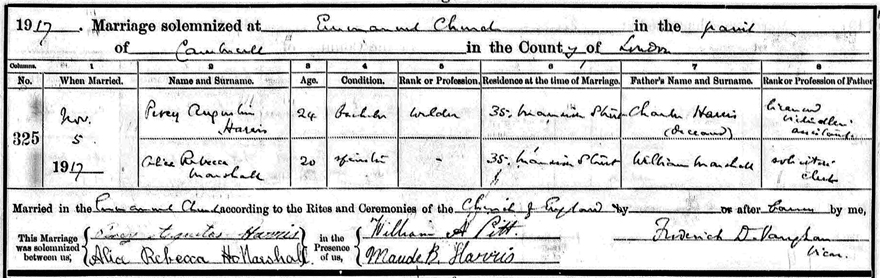 1917. Marriage solemnized at Emmanuel Church in the parish
of Camberwell in the County of London
Columns. 1 2 3 4 5 6 7 8
No. When Married. Name and Surname. Age. Condition. Rank or Profession. Residence at the time of Marriage. Father's Name and Surname. Rank or Profession of Father
325
Nov. 5 1917
Percy Augustus Harris 24 bachelor welder 35 Mansion Street Charles Harris (deceased) licensed victualler's assistant
Alice Rebecca Marshall 20 spinster - 35 Mansion Street William Marshall solicitors' clerk
Married in the Emmanuel Church according to the Rites and Ceremonies of the Church of England by or after banns by me,
This Marriage was solemnized between us,
Percy Augustus Harris
Alice Rebecca Marshall
in the Presence of us,
William A Pitt.
Maude B. Harris
Frederick D. Vaughan
Vicar.